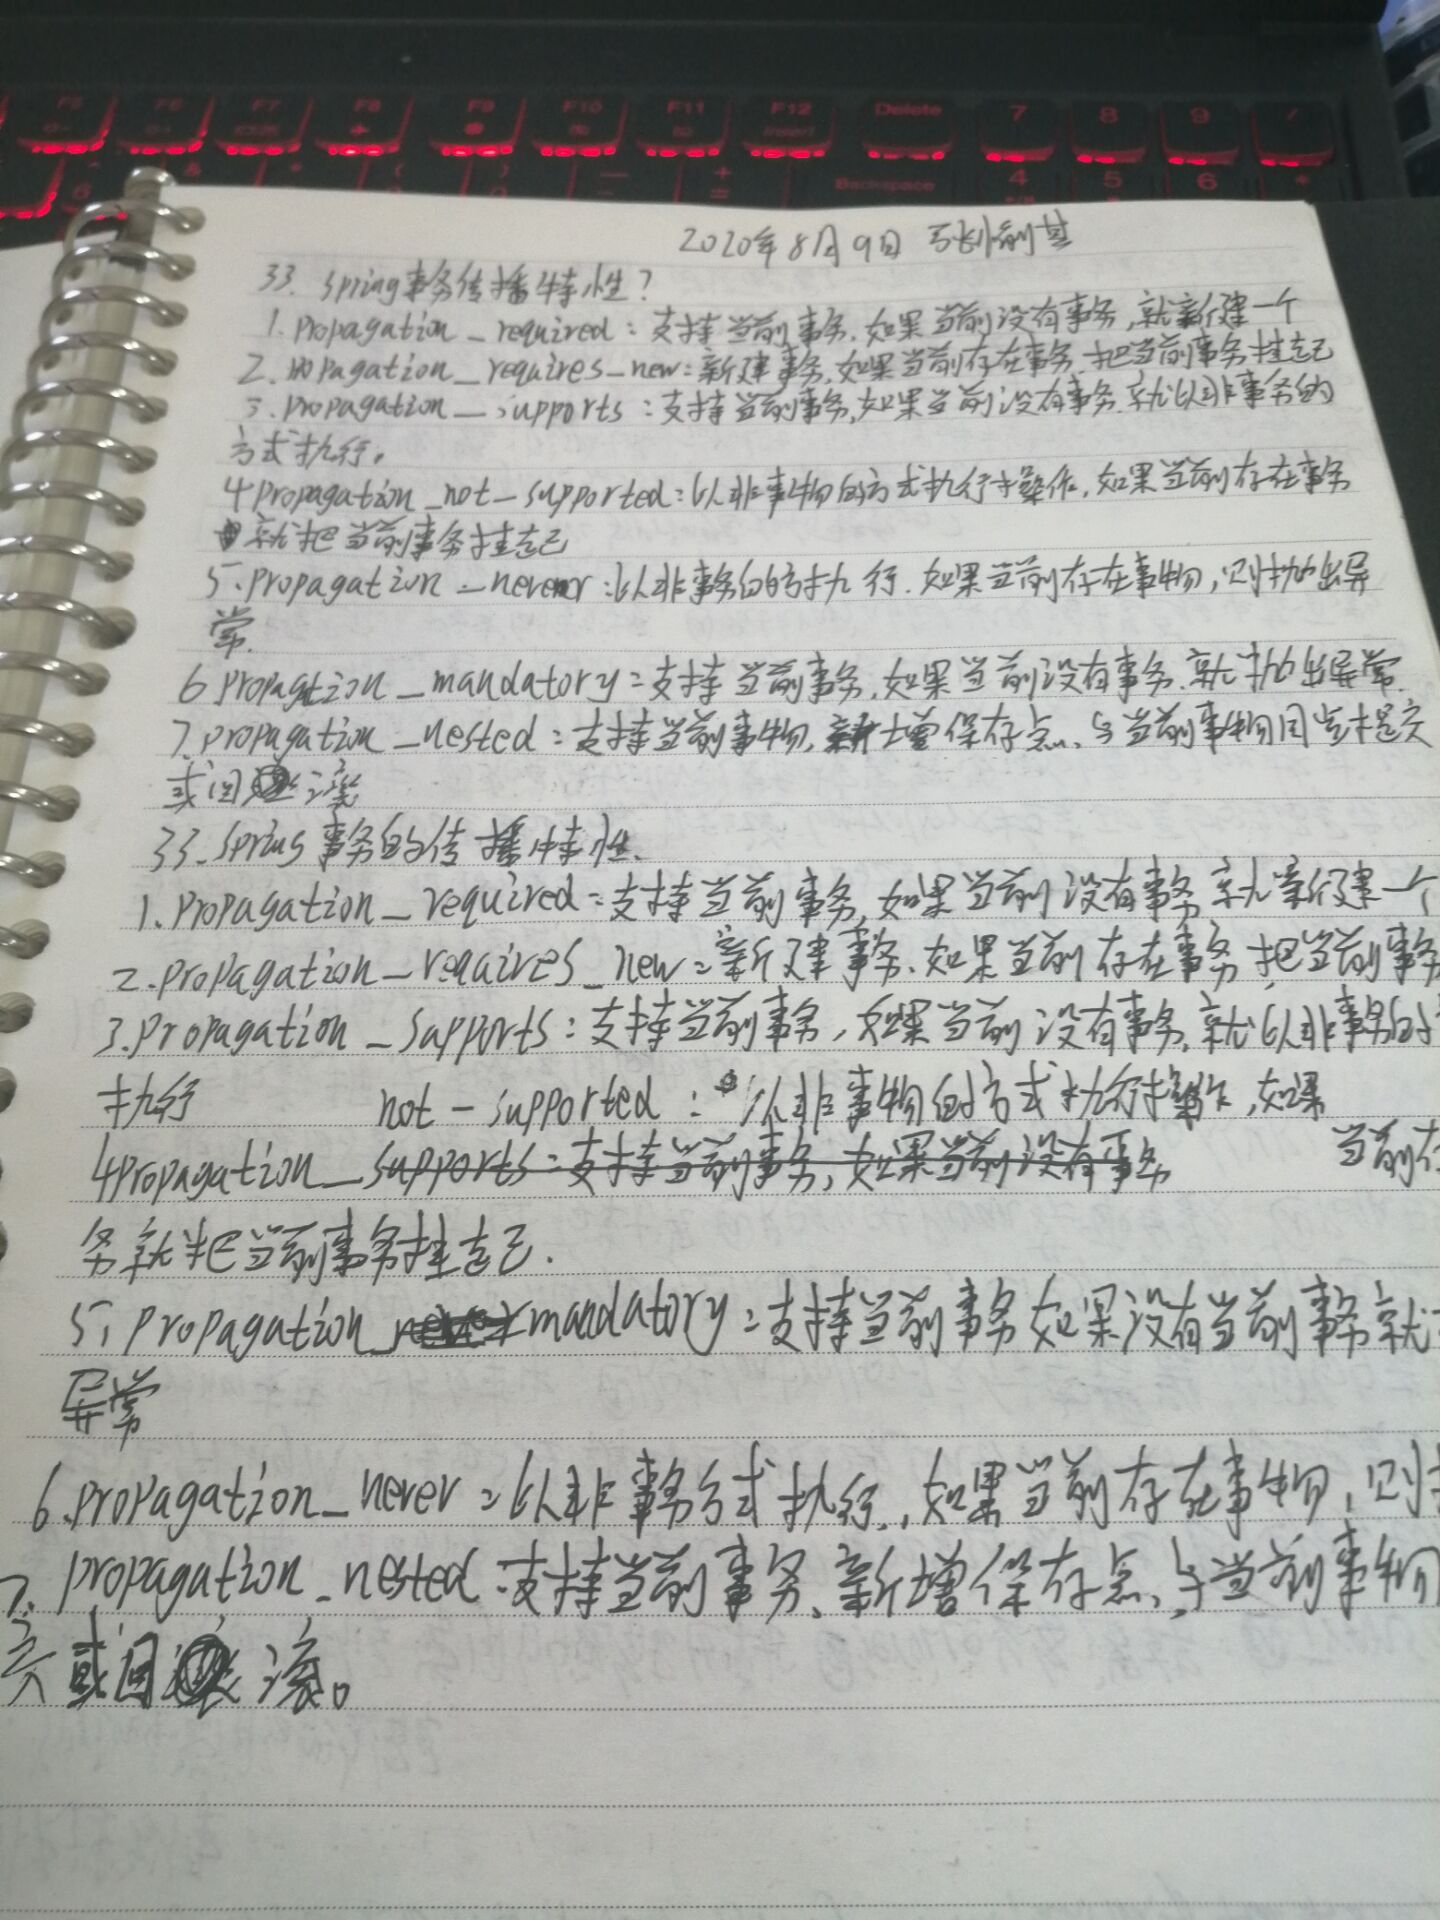 F5 F6 F7 F8 F9 F10 F11 F12 Delete 7 8 9 /
insert
6 Backspace 4 5 6 *
2020年8月9日
33. Spring事务传播特性?
1. propagation_required:支持当前事务,如果当前没有事务,就新建一个
2. propagation_requires_new:新建事务,如果当前存在事务,把当前事务挂起
3. propagation_supports:支持当前事务,如果当前没有事务.就以非事务的
方式执行。
4 propagation_not_supported:以非事物的方式执行操作,如果当前存在事务
就把当前事务挂起
5. propagation_never:以非事务的方执行.如果当前存在事物,则抛出异
常.
6 propagation_mandatory:支持当前事务,如果当前没有事务.就抛出异常.
7. propagation_nested:支持当前事物,新增保存点、与当前事物同步提交
或回滚
33. Spring 事务的传播特性.
1. Propagation_required:支持当前事务,如果当前没有事务就新建一个
2. propagation_requires_new:新建事务.如果当前存在事务,把当前事务
3. Propagation_supports:支持当前事务,如果当前没有事务,就以非事务的
执行 not-supported:以非事物的方式执行操作,如果
4 Propagation_supports:支持当前事务,如果当前没有事务 当前存
务就把当前事务挂起.
5. Propagation_mandatory:支持当前事务如果没有当前事务就
异常
6. propagation_never:以非事务方式执行.,如果当前存在事物,则
7. propagation_nested:支持当前事务、新增保存点、与当前事物
交或回滚。